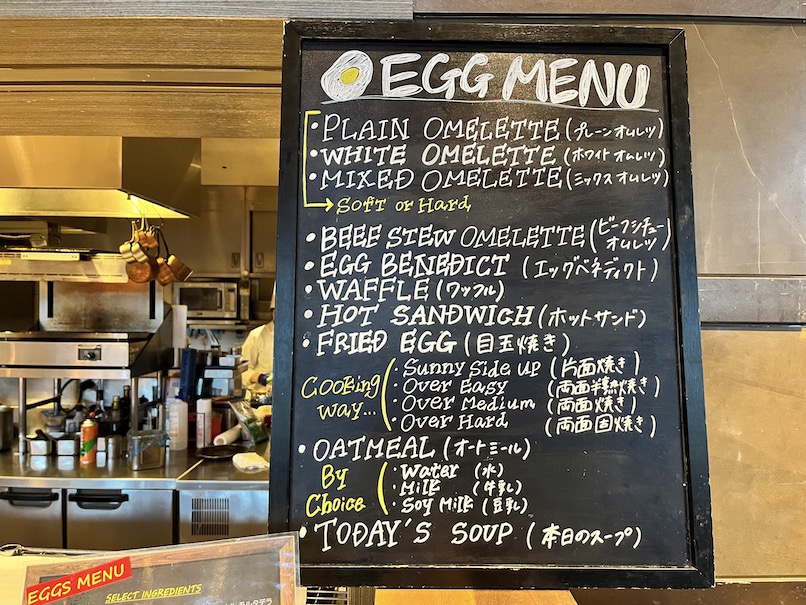 EGG MENU
・PLAIN OMELETTE (プレーンオムレツ)
・WHITE OMELETTE (ホワイトオムレツ)
・MIXED OMELETTE (ミックスオムレツ)
→ Soft or Hard
・BEEF STEW OMELETTE (ビーフシチューオムレツ)
・EGG BENEDICT (エッグベネディクト)
・WAFFLE (ワッフル)
・HOT SANDWICH (ホットサンド)
・FRIED EGG (目玉焼き)
Cooking way...
・Sunny Side up (片面焼き)
・Over Easy (両面半熟焼き)
・Over Medium (両面焼き)
・Over Hard (両面固焼き)
・OATMEAL (オートミール)
By Choice
・Water (水)
・Milk (牛乳)
・Soy Milk (豆乳)
・TODAY'S SOUP (本日のスープ)
EGGS MENU
SELECT INGREDIENTS